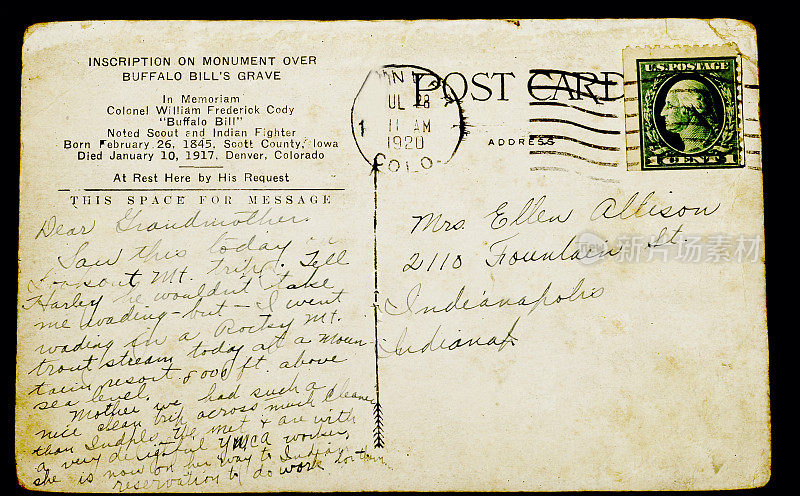 INSCRIPTION ON MONUMENT OVER
BUFFALO BILL'S GRAVE
In Memoriam
Colonel William Frederick Cody
"Buffalo Bill"
Noted Scout and Indian Fighter
Born February 26, 1845, Scott County, Iowa
Died January 10, 1917, Denver, Colorado
At Rest Here by His Request
THIS SPACE FOR MESSAGE
Dear Grandmother
Saw this today on
Lookout Mt. trip. Tell
Harley he wouldn't take
me wading - but - I went
wading in a Rocky Mt.
trout stream today at a Moun-
tain resort 8000 ft. above
sea level.
Mother we had such a
nice clean trip across much cleaner
than Indpls. The met & are with
a very delightful YWCA worker,
she is now on her way to Indian
reservation to do work
POST CARD
UL 28
11 AM
1920
COLO-
1
ADDRESS
U.S. POSTAGE
1 CENT 1
Mrs. Ellen Allison
2110 Fountain St
Indianapolis
Indiana
新片场素材